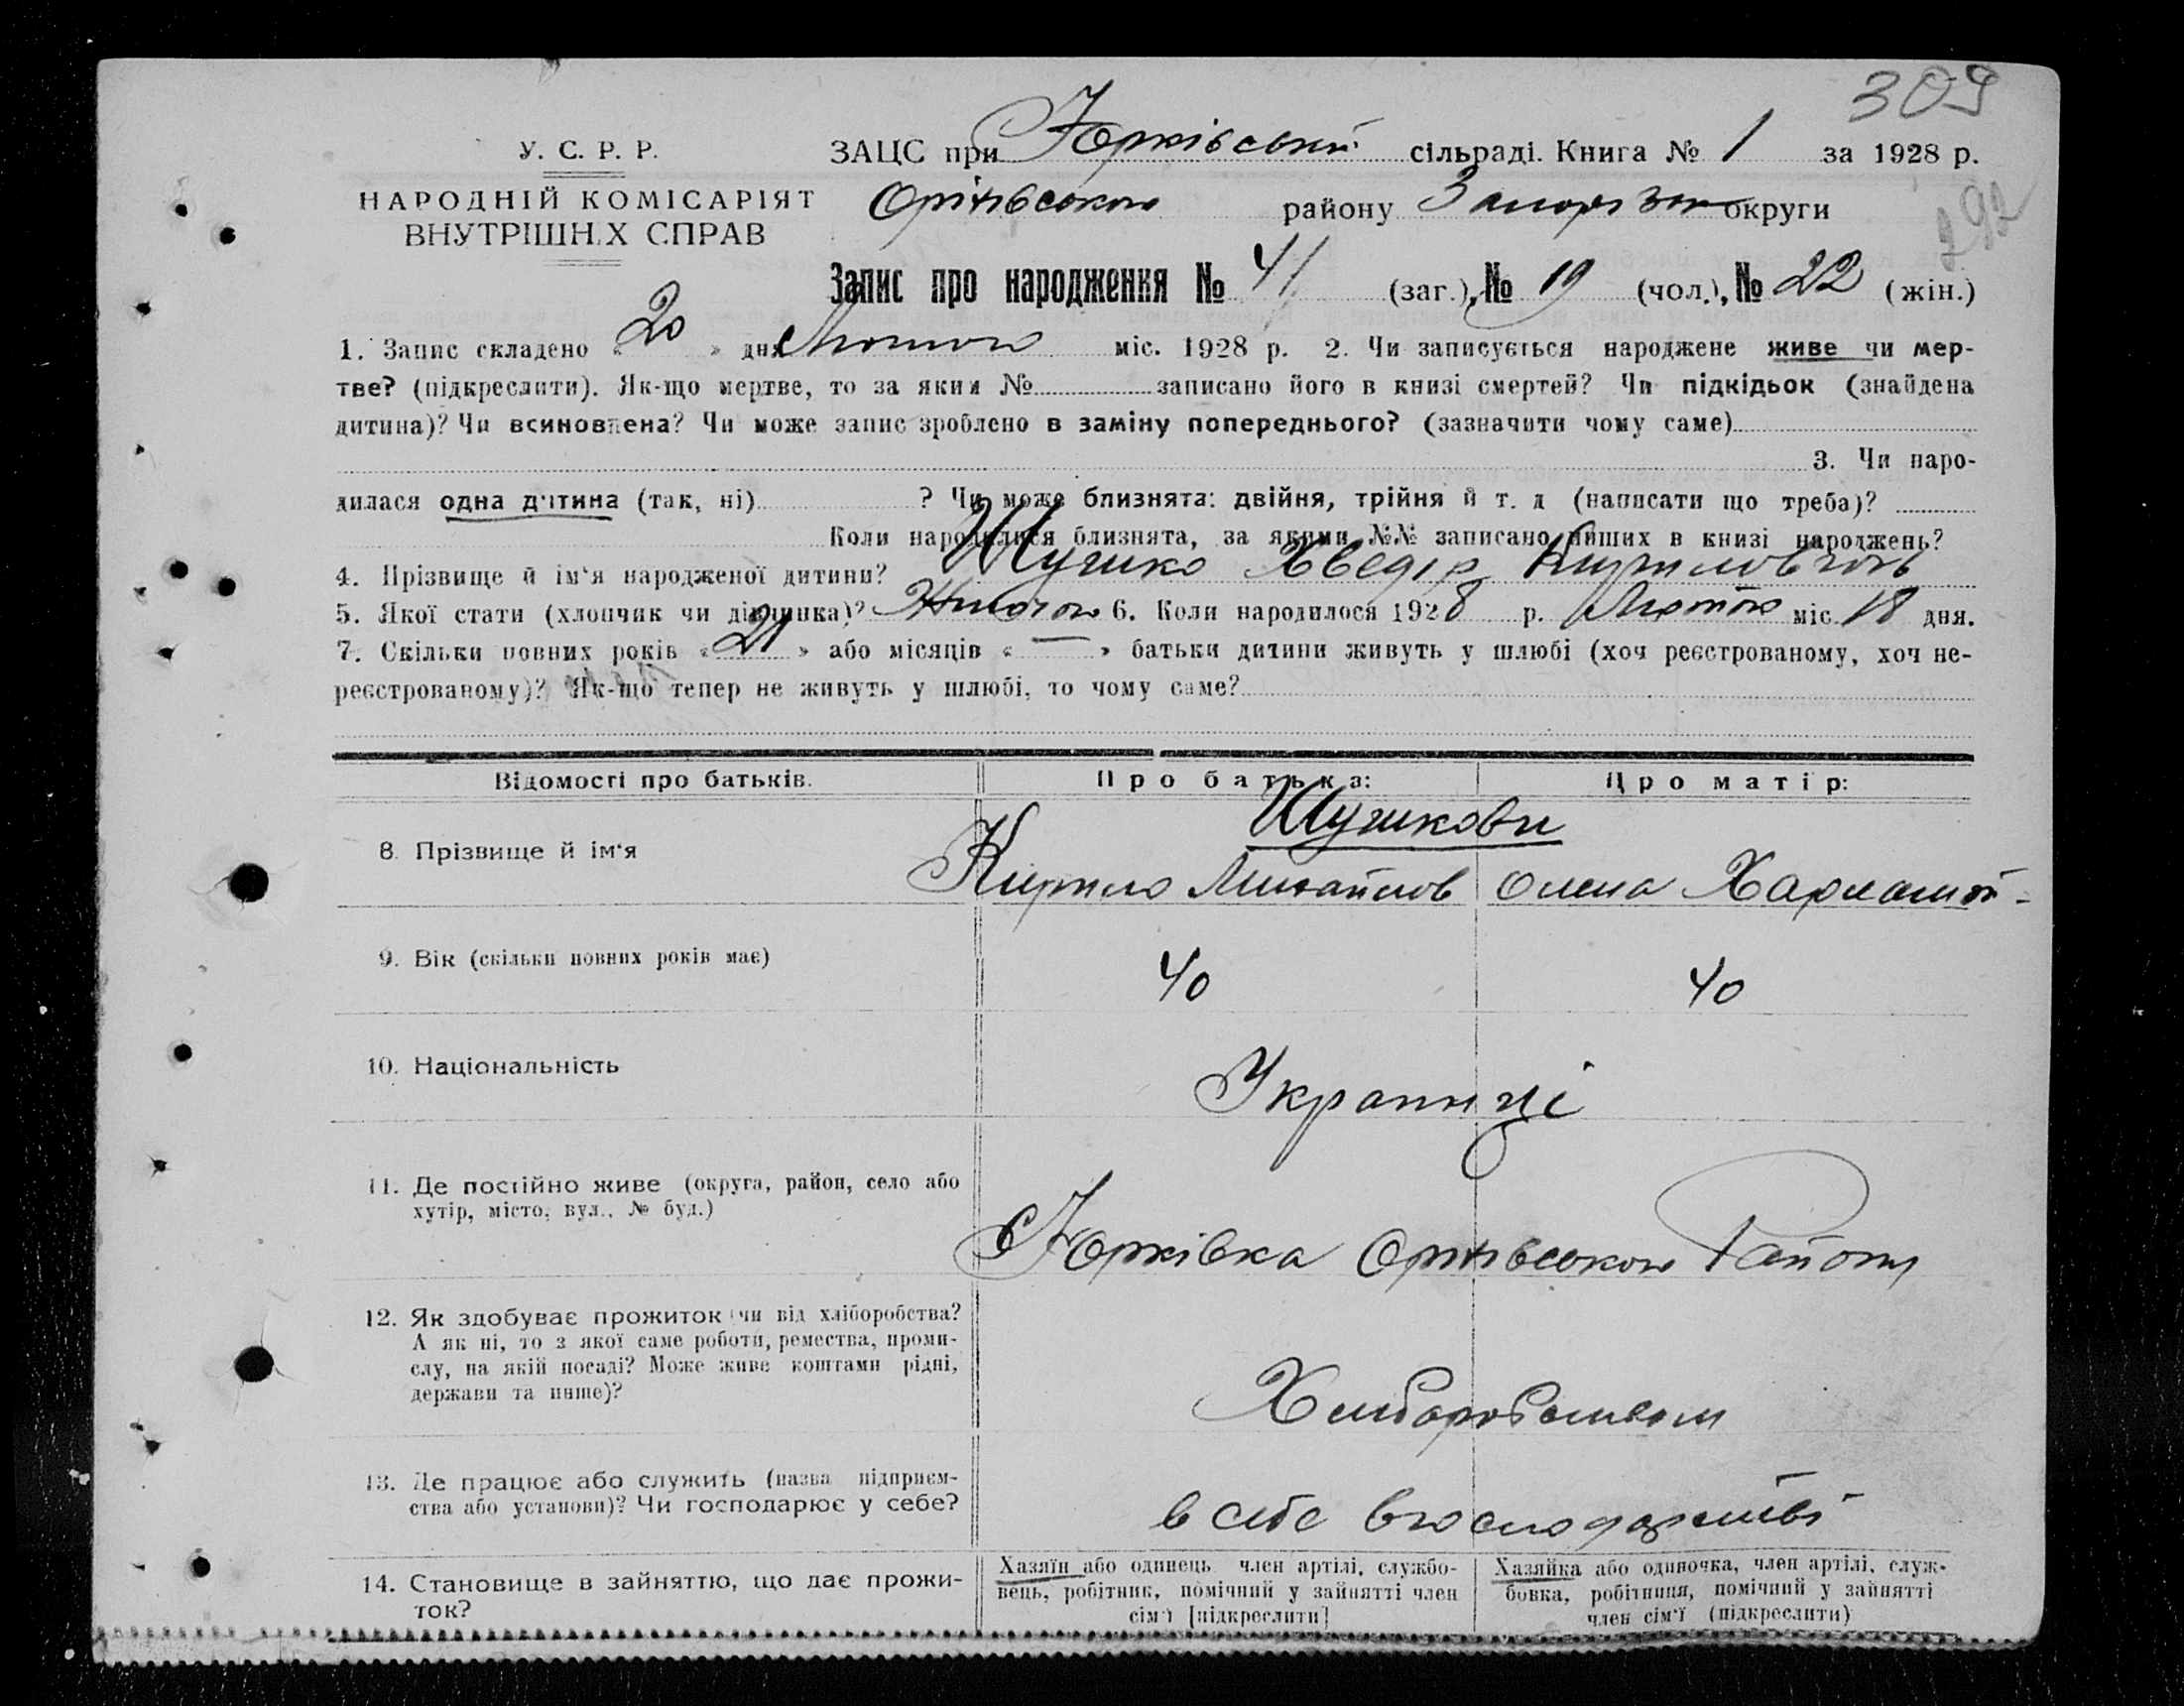 309
У. С. Р. Р.
НАРОДНІЙ КОМІСАРІЯТ
ВНУТРІШНІХ СПРАВ
ЗАЦС при Юрківській сільраді. Книга № 1 за 1928 р.
Оріхівського району Запорізької округи
292
Запис про народження № 41 (заг.), № 19 (чол.), № 22 (жін.)
1. Запис складено « 20 » дня Лютого міс. 1928 р. 2. Чи записується народжене живе чи мер-
тве? (підкреслити). Як-що мертве, то за яким № записано його в книзі смертей? Чи підкідьок (знайдена
дитина)? Чи всиновлена? Чи може запис зроблено в заміну попереднього? (зазначити чому саме)
3. Чи наро-
дилася одна дитина (так, ні) ? Чи може близнята: двійня, трійня й т. д (написати що треба)?
Коли народилися близнята, за якими №№ записано инших в книзі народжень?
4. Прізвище й ім'я народженої дитини? Хведір Кирилович
5. Якої стати (хлопчик чи дівчинка)? 6. Коли народилося 1928 р. Лютого міс. 18 дня.
7. Скільки повних років « 21 » або місяців « — » батьки дитини живуть у шлюбі (хоч реєстрованому, хоч не-
реєстрованому)? Як-що тепер не живуть у шлюбі, то чому саме?
Відомості про батьків.
Про батька:
Про матір:
8. Прізвище й ім'я
Кирило Михайлов
Олена Харламп-
9. Вік (скільки повних років має)
40
40
10. Національність
Українці
11. Де постійно живе (округа, район, село або
хутір, місто, вул., № буд.)
с Юрківка Оріхівського Району
12. Як здобуває прожиток (чи від хліборобства?
А як ні, то з якої саме роботи, ремества, проми-
слу, на якій посаді? Може живе коштами рідні,
держави та инше)?
Хліборобством
13. Де працює або служить (назва підприєм-
ства або установи)? Чи господарює у себе?
в себе в господарстві
14. Становище в зайняттю, що дає прожи-
ток?
Хазяїн або одинець член артілі, службо-
вець, робітник, помічний у зайнятті член
сім'ї [підкреслити]
Хазяйка або одиночка, член артілі, служ-
бовка, робітниця, помічний у зайнятті
член сім'ї (підкреслити)